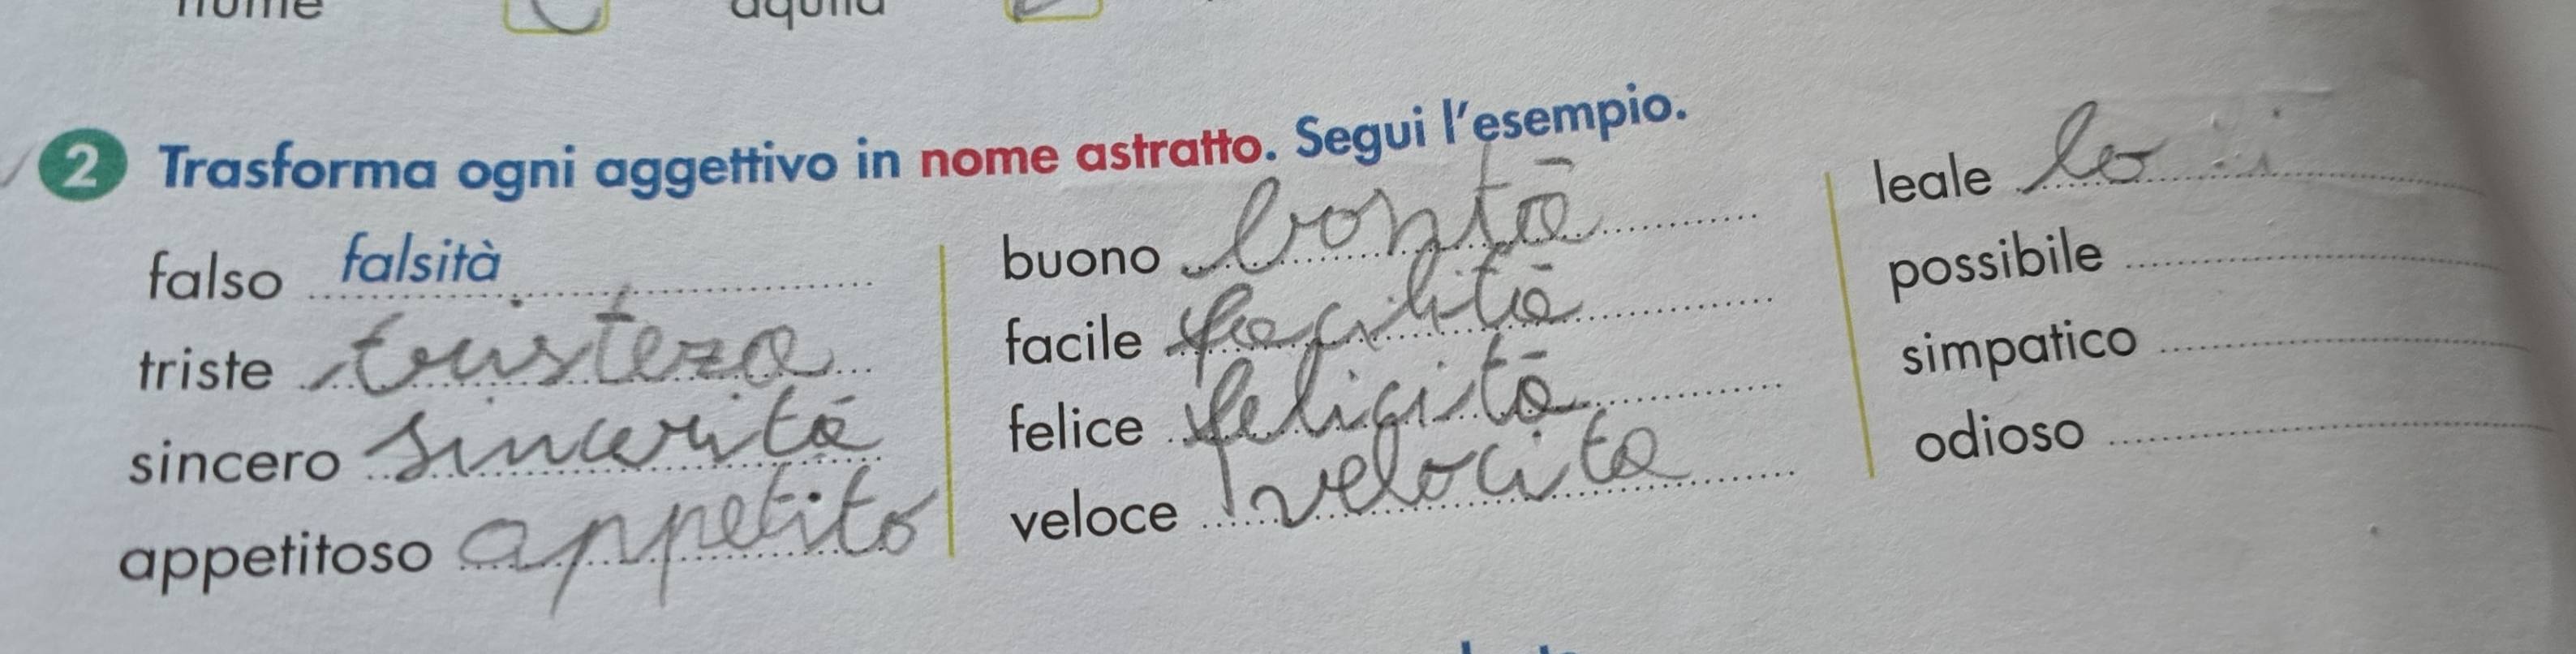 nome aquila
2 Trasforma ogni aggettivo in nome astratto. Segui l'esempio.
falso falsità
triste tristeza
sincero sincerità
appetitoso appetito
buono bontà
facile facilità
felice felicità
veloce velocita
leale lo
possibile
simpatico
odioso